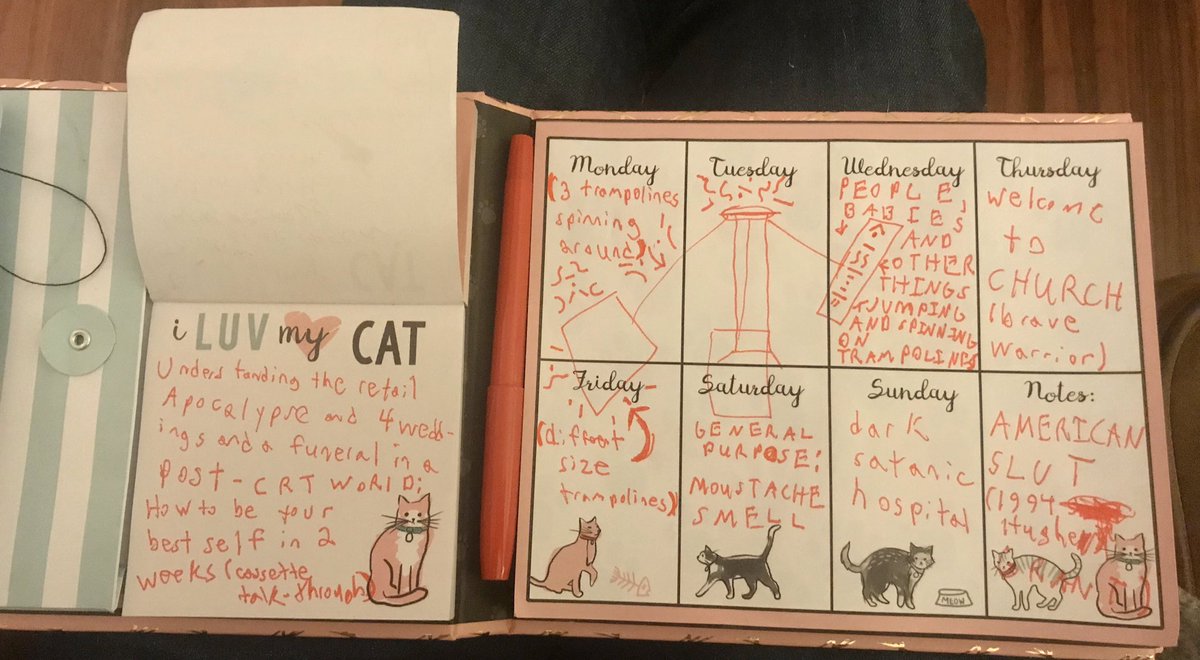 i LUV my CAT
Understanding the retail
Apocalypse and 4 wedd-
ings and a funeral in a
POST-CRT WORLD:
How to be your
best self in 2
weeks (cassette
talk-through)
Monday
(3 trampolines
spinning
around)
Tuesday
Wednesday
PEOPLE,
BABIES
AND
OTHER
THINGS
JUMPING
AND SPINNING
ON
TRAMPOLINES
Thursday
Welcome
to
CHURCH
(brave
warrior)
Friday
(difroat
size
trampolines)
Saturday
GENERAL
PURPOSE:
MOUSTACHE
SMELL
Sunday
dark
satanic
hospital
MEOW
Notes:
AMERICAN
SLUT
(1994